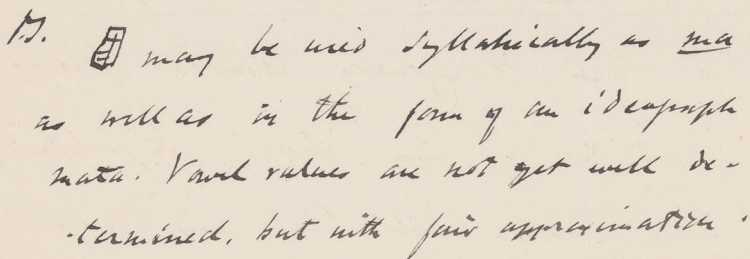 B. may be used syllabically as ma
as well as in the form of an ideograph
mata. Vowel values are not yet well de-
-termined, but with fair approximation.